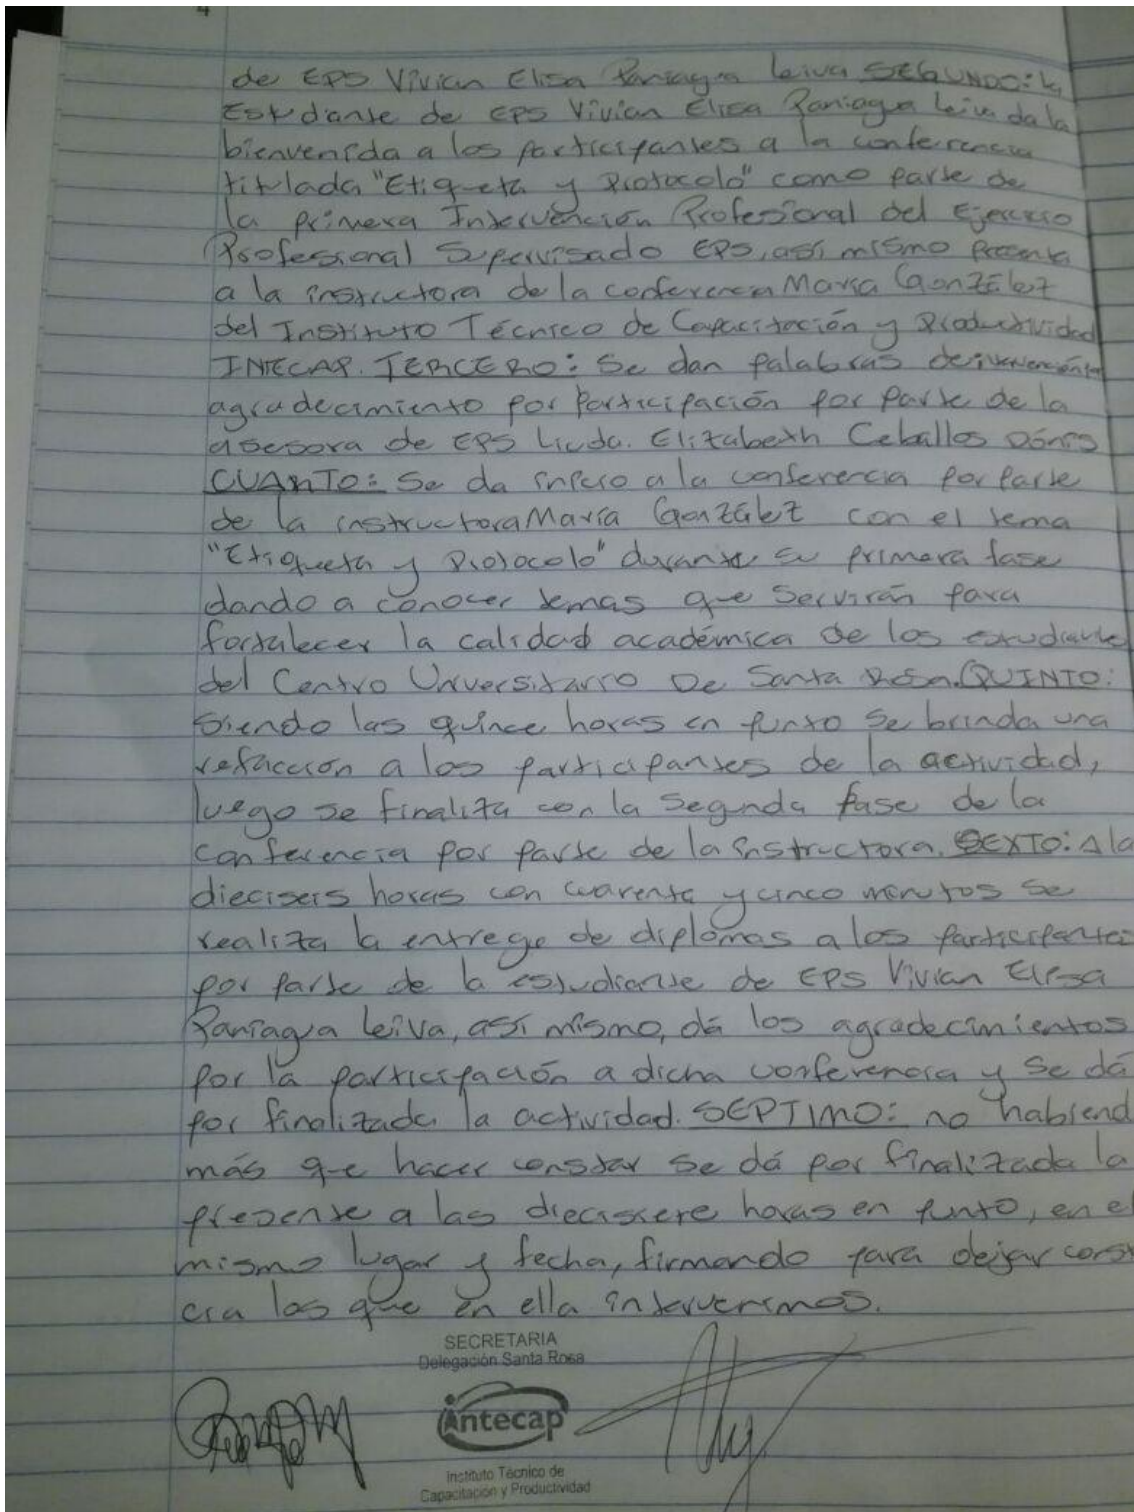 4
de EPS Vivian Elisa Paniagua Leiva SEGUNDO: la
Estudiante de EPS Vivian Elisa Paniagua Leiva da la
bienvenida a los participantes a la conferencia
titulada "Etiqueta y Protocolo" como parte de
la primera Intervención Profesional del Ejercicio
Professional Supervisado EPS, así mismo presenta
a la instructora de la conferencia María González
del Instituto Técnico de Capacitación y Productividad
INTECAP. TERCERO: Se dan palabras de
agradecimiento por Participación por parte de la
asesora de EPS Licda. Elizabeth Ceballos
CUANTO: Se da inicio a la conferencia por parte
de la instructora María González con el tema
"Etiqueta y Protocolo" durante su primera fase
dando a conocer temas que Servirán para
fortalecer la calidad académica de los estudiante
del Centro Universitario De Santa Rosa. QUINTO:
Siendo las quince horas en punto se brinda una
refacción a los participantes de la actividad,
luego se finaliza con la Segunda fase de la
conferencia por parte de la instructora. SEXTO: A la
dieciseis horas con cuarenta y cinco minutos se
realiza la entrega de diplomas a los participantes
por parte de la estudiante de EPS Vivian Elisa
Paniagua Leiva, así mismo, dá los agradecimientos
por la participación a dicha conferencia y se dá
por finalizada la actividad. SEPTIMO: no habiend
más que hacer constar se dá por finalizada la
presente a las diecisiete horas en punto, en el
mismo lugar y fecha, firmando para dejar const
cia los que en ella intervenimos.
SECRETARIA
Delegación Santa Rosa
intecap
Instituto Técnico de
Capacitación y Productividad